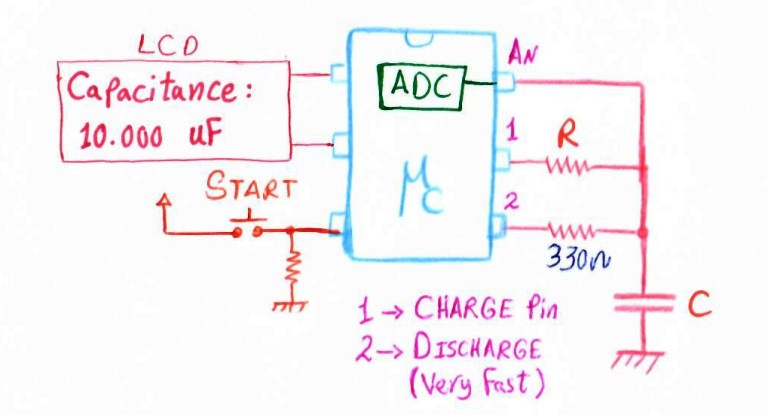 LCD
Capacitance:
10.000 uF
START
ADC
μc
AN
1
R
2
330Ω
C
1 → CHARGE Pin
2 → DISCHARGE
(Very Fast)